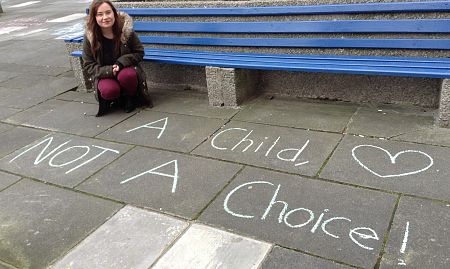 A Child, ♡
NOT A Choice!